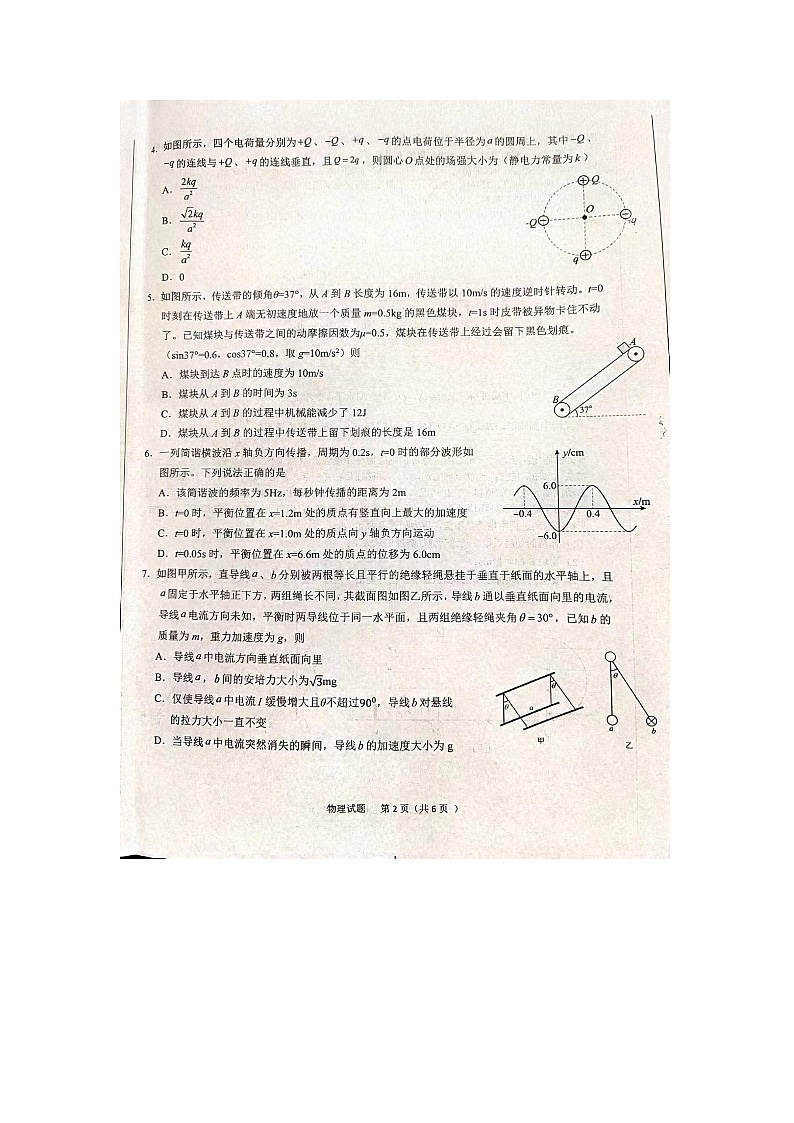 4. 如图所示，四个电荷量分别为+Q、-Q、+q、-q的点电荷位于半径为a的圆周上，其中-Q、
-q的连线与+Q、+q的连线垂直，且Q=2q，则圆心O点处的场强大小为（静电力常量为k）
A. 2kq/a²
B. √2kq/a²
C. kq/a²
D. 0
Q
O
-Q
-q
q
5. 如图所示，传送带的倾角θ=37°，从A到B长度为16m，传送带以10m/s的速度逆时针转动。t=0
时刻在传送带上A端无初速度地放一个质量m=0.5kg的黑色煤块，t=1s时皮带被异物卡住不动
了。已知煤块与传送带之间的动摩擦因数为μ=0.5，煤块在传送带上经过会留下黑色划痕。
（sin37°=0.6，cos37°=0.8，取g=10m/s²）则
A. 煤块到达B点时的速度为10m/s
B. 煤块从A到B的时间为3s
C. 煤块从A到B的过程中机械能减少了12J
D. 煤块从A到B的过程中传送带上留下划痕的长度是16m
A
B
37°
6. 一列简谐横波沿x轴负方向传播，周期为0.2s，t=0时的部分波形如
图所示。下列说法正确的是
A. 该简谐波的频率为5Hz，每秒钟传播的距离为2m
B. t=0时，平衡位置在x=1.2m处的质点有竖直向上最大的加速度
C. t=0时，平衡位置在x=1.0m处的质点向y轴负方向运动
D. t=0.05s时，平衡位置在x=6.6m处的质点的位移为6.0cm
y/cm
6.0
x/m
-0.4
0.4
-6.0
7. 如图甲所示，直导线a、b分别被两根等长且平行的绝缘轻绳悬挂于垂直于纸面的水平轴上，且
a固定于水平轴正下方，两组绳长不同，其截面图如图乙所示，导线b通以垂直纸面向里的电流，
导线a电流方向未知，平衡时两导线位于同一水平面，且两组绝缘轻绳夹角θ=30°，已知b的
质量为m，重力加速度为g，则
A. 导线a中电流方向垂直纸面向里
B. 导线a，b间的安培力大小为√3mg
C. 仅使导线a中电流I缓慢增大且θ不超过90⁰，导线b对悬线
的拉力大小一直不变
D. 当导线a中电流突然消失的瞬间，导线b的加速度大小为g
θ
θ
a
甲
θ
a
b
乙
物理试题 第2页（共6页）